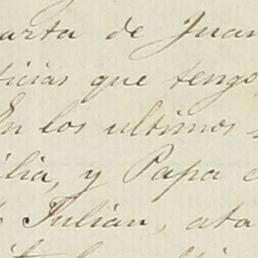 arta de Juan
ticias que tengo
En los ultimos
ilia, y Papa
Julian, ata